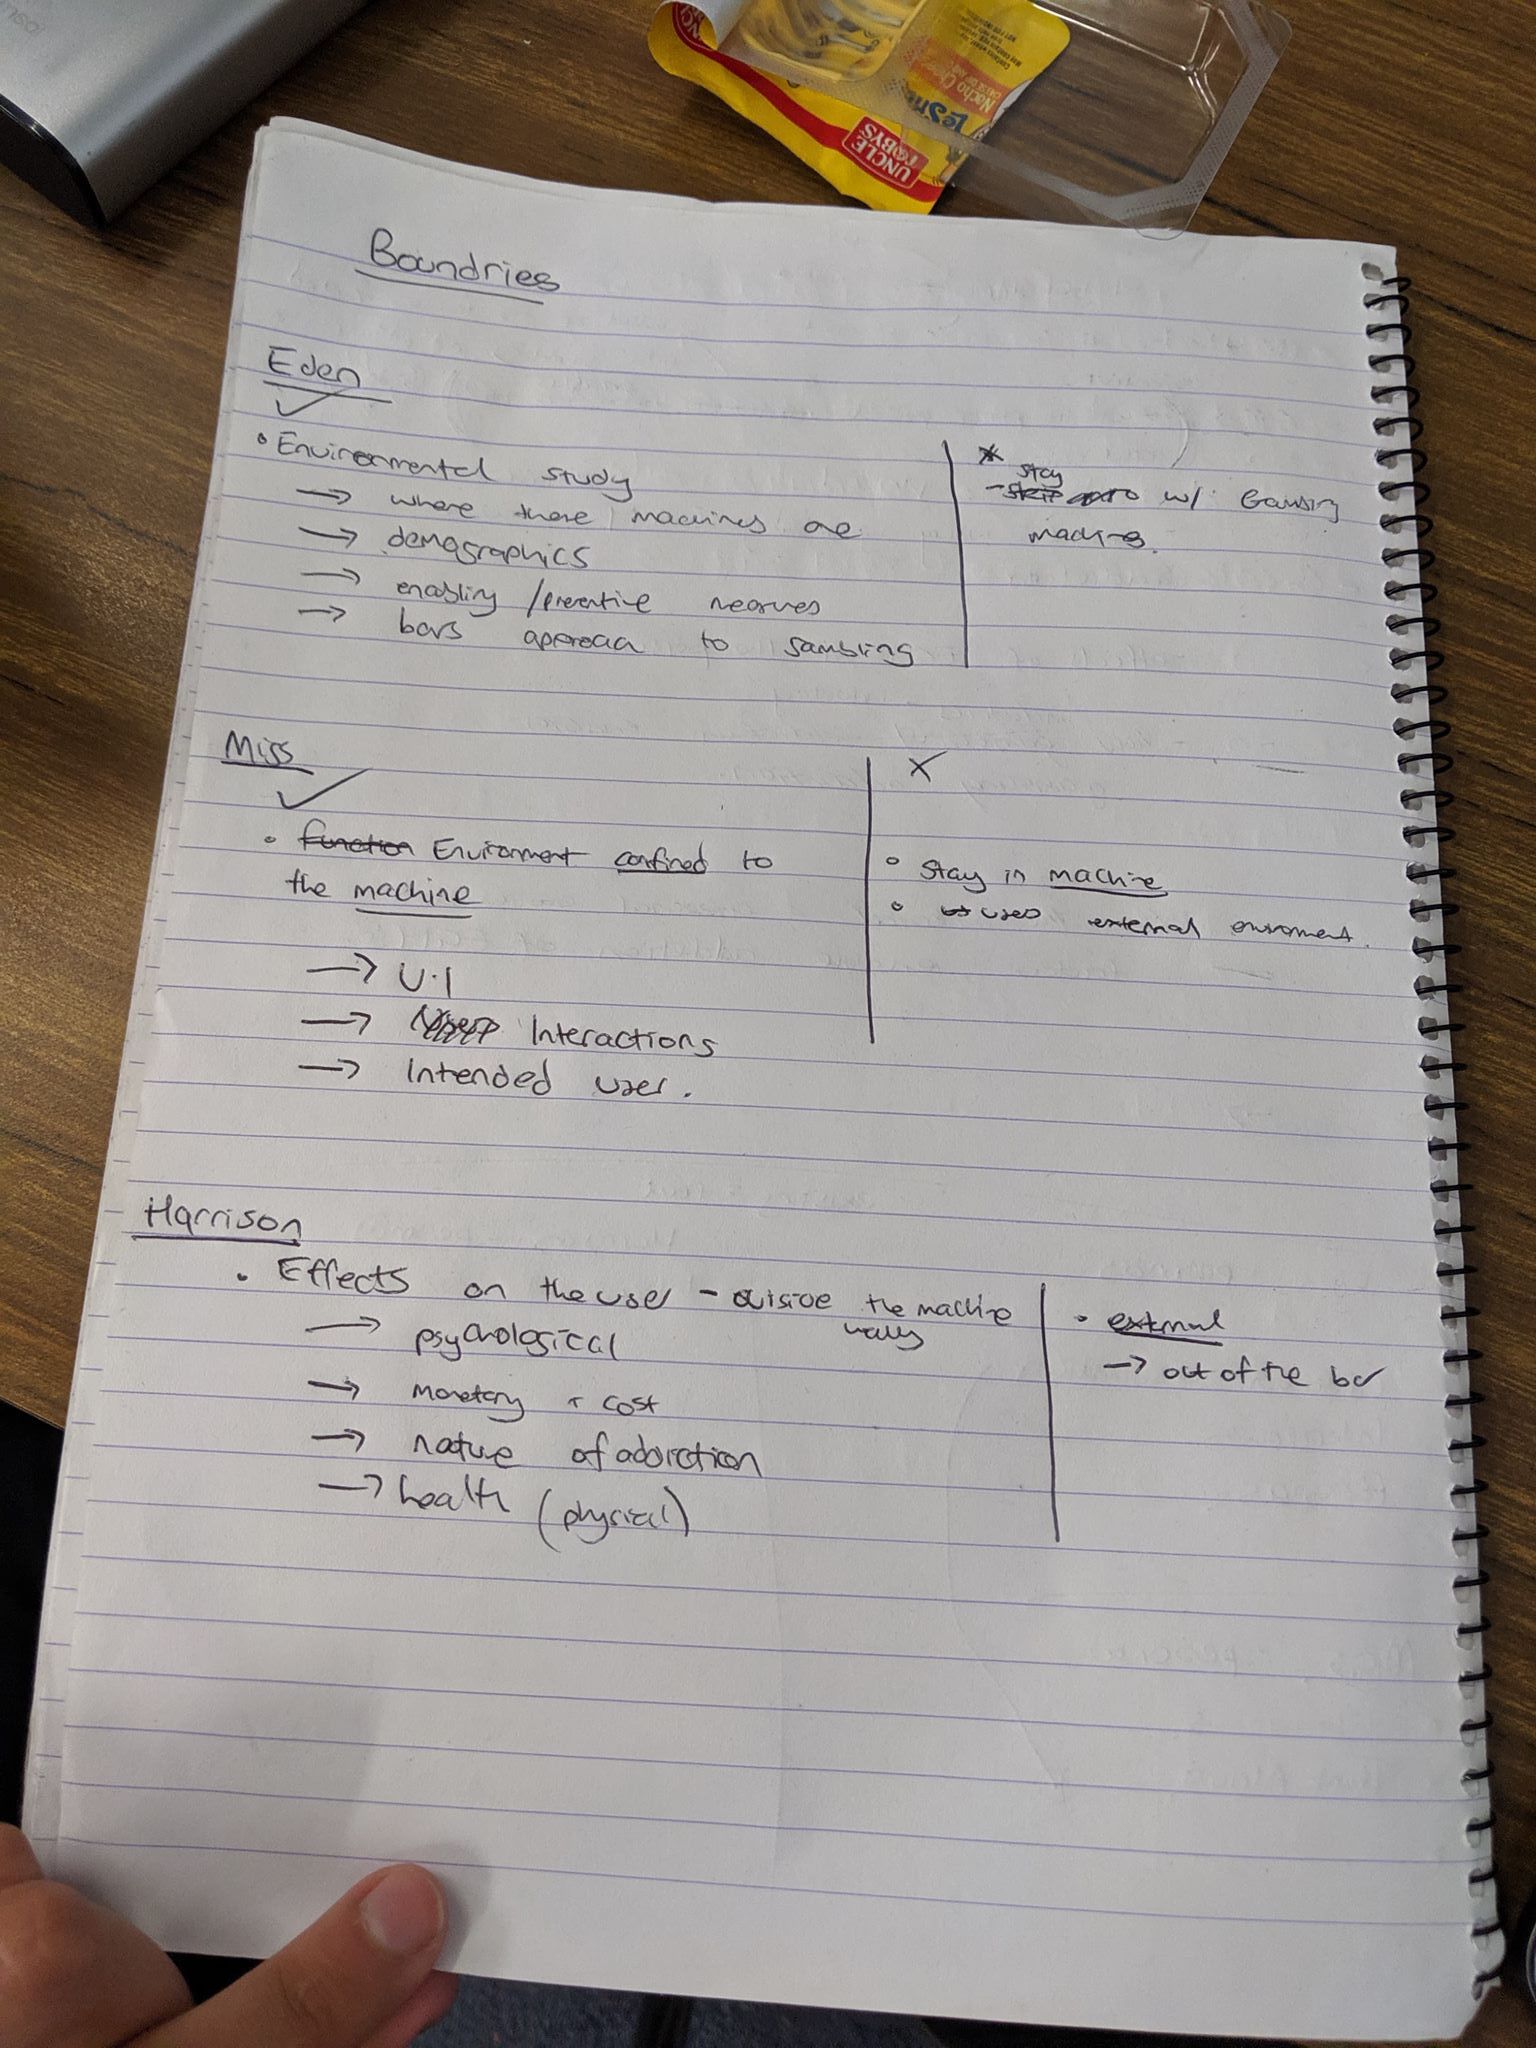 Boundries
Eden
• Environmental study
→ where these machines are
→ demographics
→ enabling /preventive
→ bars to gambling
stay
w/ Gambling
machines.
Miss
• function Environment confined to
the machine
→ U.I
→ Interactions
→ Intended user.
X
• Stay in machine
• external enviroment.
Harrison
• Effects on the user - outside the machine
→ psychological
→ Monetary + cost
→ nature of addiction
→ health (physical)
• external
→ out of the bar
UNCLE TOBYS
Nacho Cheese